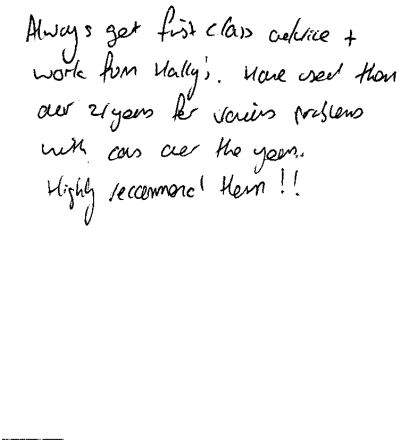 Always get first class advice +
work from Hally's. Have used them
over 21 years for various problems
with cars over the years.
Highly recommend them!!